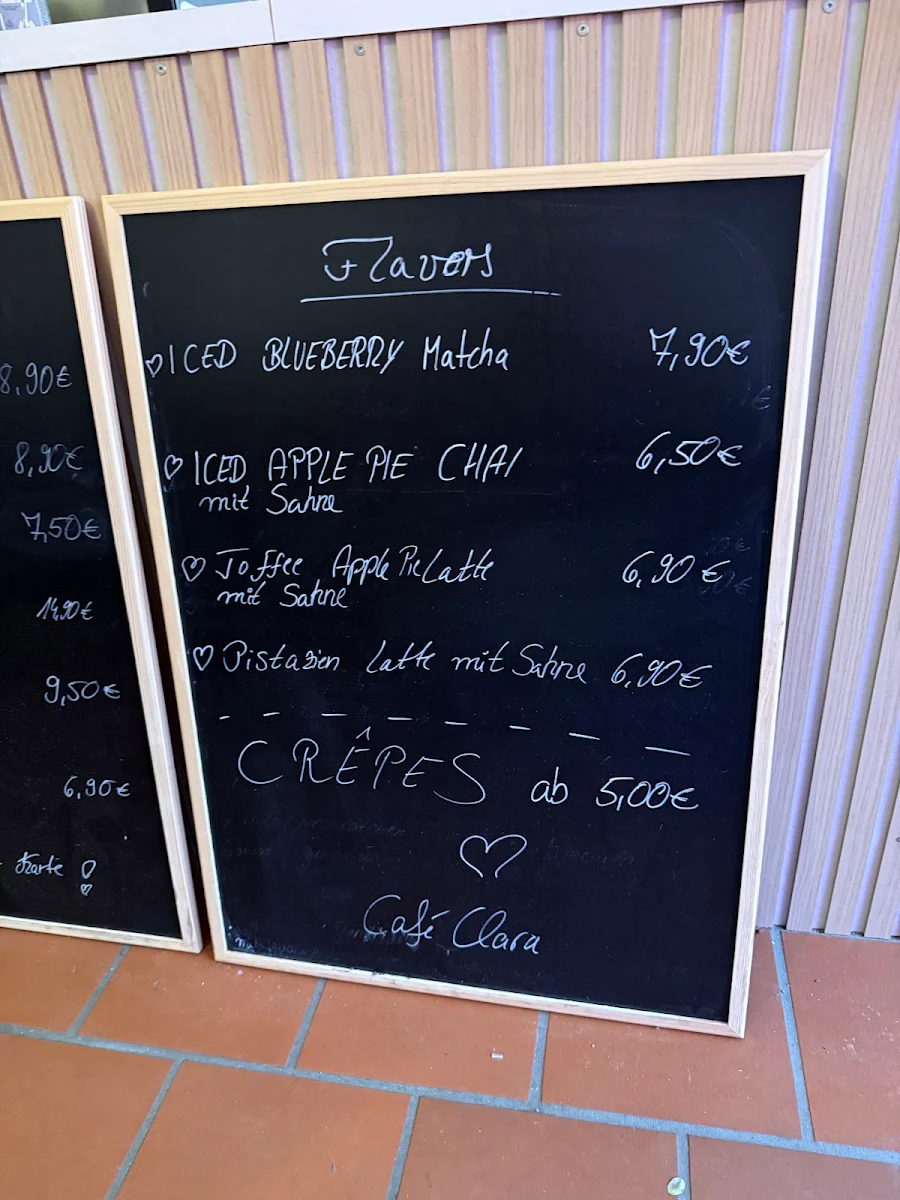 8,90€
8,90€
7,50€
14,90€
9,50€
6,90€
Karte
Flavors
ICED BLUEBERRY Matcha 7,90€
ICED APPLE PIE CHAI 6,50€
mit Sahne
Toffee Apple Pie Latte 6,90€
mit Sahne
Pistazien Latte mit Sahne 6,90€
CRÊPES ab 5,00€
Café Clara